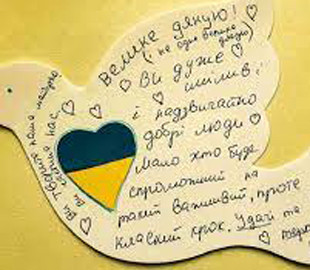 Велике дякую!
(і не одне велике дякую)
Ви дуже
сміливі
і надзвичайно
добрі люди
Мало хто буде
спроможний на
такий важливий, проте
класний крок. Удачі та
Ви творите наше майбутнє
Ви нас